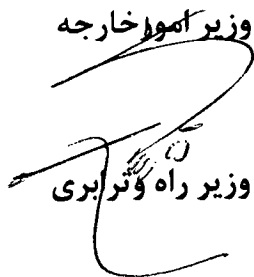 وزیر امور خارجه
وزیر راه وترابری